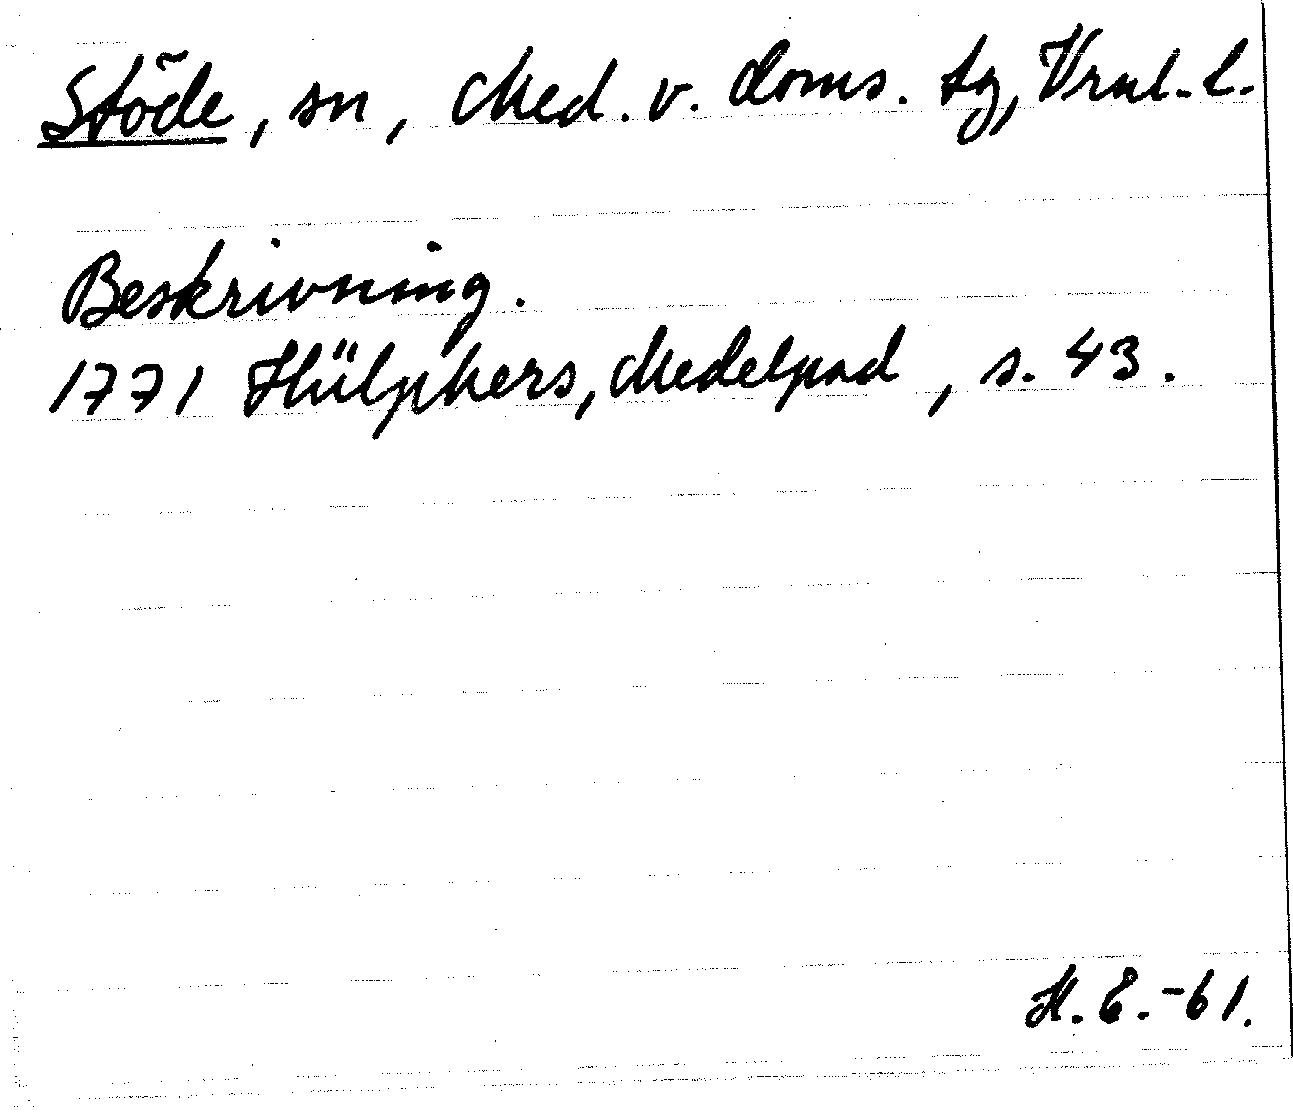 Stöde, sn, Med. v. doms. tg, Vrnl. l.
Beskrivning.
1771 Hülphers, Medelpad, s. 43.
H. E. -61.